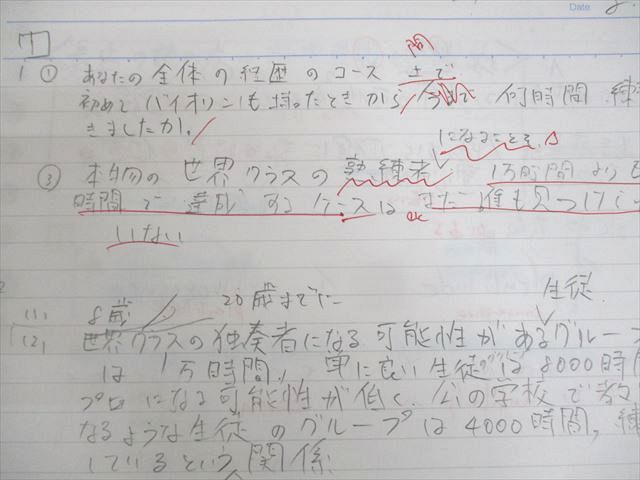 Date
1 ① あなたの全体の経歴のコース 間 まで
初めてバイオリンを持ったときから 今まで 何時間 練
きましたか。
になること
③ 本物の世界クラスの熟練者 1万時間より
時間で達成するケースは まだ 誰も見つけて
いない
(1) 8歳 20歳までに 生徒
(2) 世界クラスの独奏者になる可能性があるグルー
は 1万時間, 単に良い生徒 は 8000時
プロになる可能性が低く、公の学校で教
なるような生徒のグループは 4000時間, 練
しているという関係